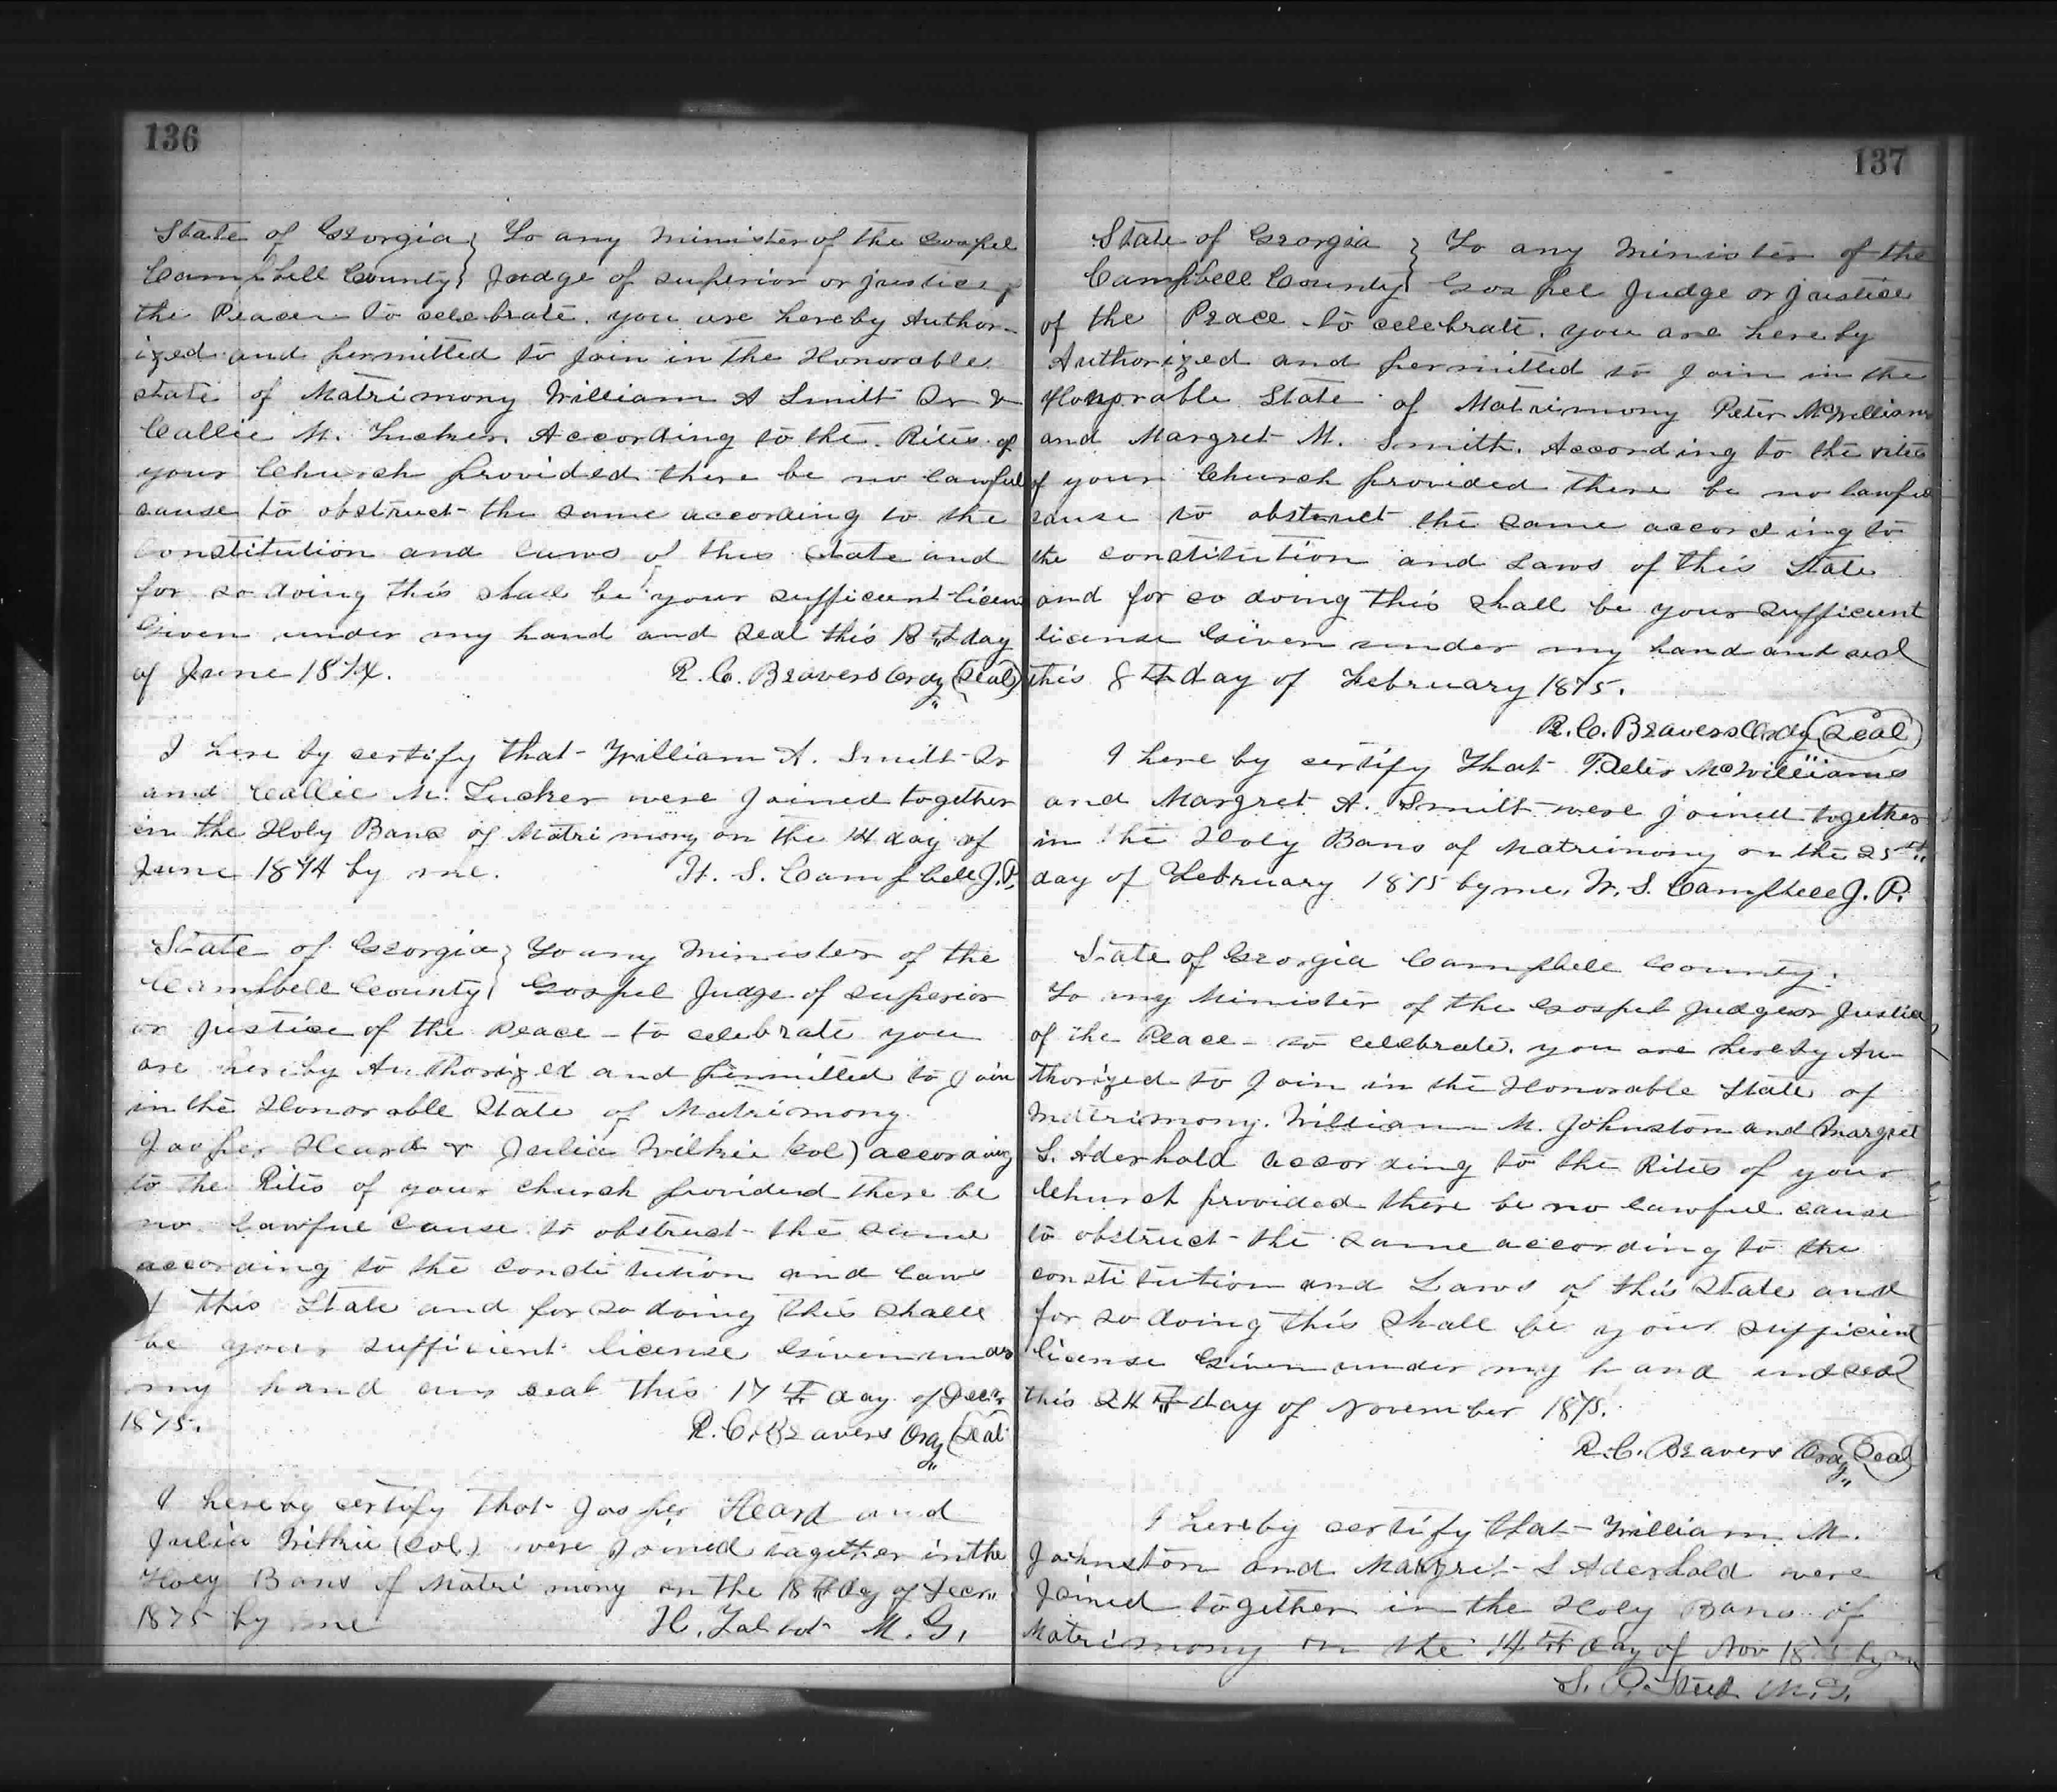 136
State of Georgia } To any Minister of the Gospel
Campbell County } Judge of superior or justice of
the Peace to celebrate. you are hereby Author-
ized and permitted to join in the Honorable
state of Matrimony William A Smith Sr &
Callie M. Tucker According to the Rites of
your Church provided there be no lawful
cause to obstruct the same according to the
Constitution and laws of this State and
for so doing this shall be your sufficient licen
Given under my hand and seal this 13th day
of June 1874. R. C. Beavers Ordy (Seal)
I here by certify that William A. Smith Sr
and Callie M. Tucker were joined together
in the Holy Bans of Matrimony on the 14 day of
June 1874 by me. W. S. Campbell J.P.
State of Georgia } To any Minister of the
Campbell County } Gospel Judge of superior
or justice of the Peace - to celebrate you
are hereby Authorized and permitted to join
in the Honorable State of Matrimony
Jasper Heard & Julia Wilkie (col) according
to the Rites of your church provided there be
no lawful cause to obstruct the same
according to the constitution and laws
of this State and for so doing this shall
be your sufficient license Given under
my hand and seal this 17th day of Decr
1875. R. C. Beavers Ordy (Seal
I hereby certify that Jasper Heard and
Julia Wilkie (col) were joined together in the
Holy Bans of Matrimony on the 18th day of Decr
1875 by me H. Talbot M. G.
137
State of Georgia } To any Minister of the
Campbell County } Gospel Judge or Justice
of the Peace to celebrate. you are hereby
Authorized and permitted to join in the
Honorable State of Matrimony Peter McWilliams
and Margret M. Smith. According to the rites
of your Church provided there be no lawful
cause to obstruct the same according to
the constitution and Laws of this State
and for so doing this shall be your sufficient
license Given under my hand and seal
this 8th day of February 1875.
R. C. Beavers Ordy (Seal)
I here by certify that Peter McWilliams
and Margret A. Smith were joined together
in the Holy Bans of Matrimony on the 25th
day of February 1875 by me, W. S. Campbell J. P.
State of Georgia Campbell County.
To any Minister of the Gospel Judge or Justice
of the Peace - to celebrate. you are hereby Au-
thorized to join in the Honorable State of
Matrimony. William M. Johnston and Margret
S. Aderhold according to the Rites of your
Church provided there be no lawful cause
to obstruct the same according to the
constitution and Laws of this State and
for so doing this shall be your sufficient
license Given under my hand and seal
this 24th day of November 1875.
R. C. Beavers Ordy (Seal)
I hereby certify that William M.
Johnston and Margret S Aderhold were
joined together in the Holy Bans of
Matrimony on the 14th day of Nov 1875 by m
S. P. M. G.